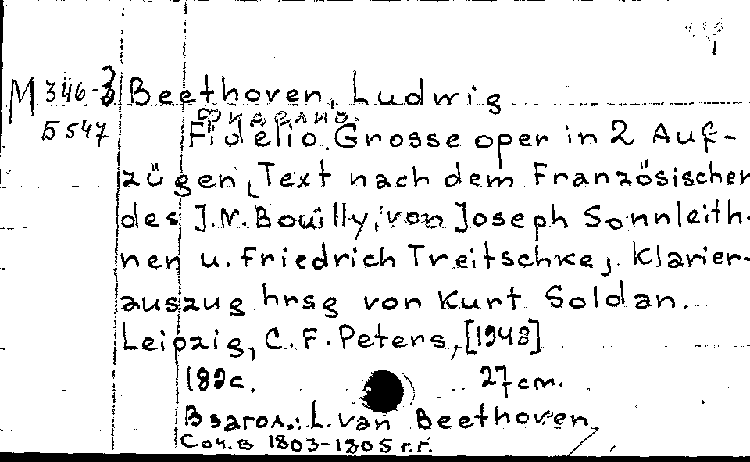 М 346-3 Beethoven, Ludwig
Б 547
Фиделио.
Fidelio. Grosse oper in 2 Auf-
zügen, Text nach dem Französischen
des J.N. Bouilly, von Joseph Sonnleith-
ner u. Friedrich Treitschke]. Klavier-
auszug hrsg von Kurt Soldan.
Leipzig, C.F. Peters, [1948]
182с. 27 cm.
В загол.: L. van Beethoven.
Соч. в 1803-1805 г.г.